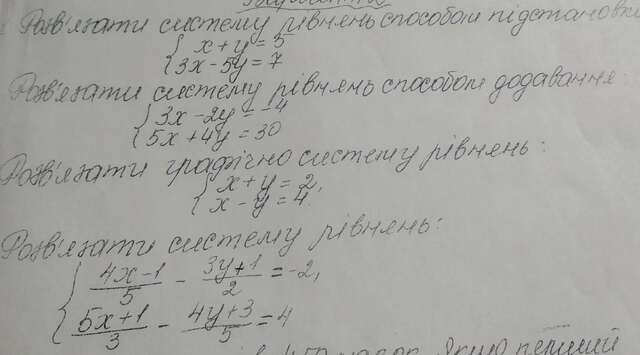 Розв'язати систему рівнянь способом підстановки
{ x + y = 5
3x - 5y = 7
Розв'язати систему рівнянь способом додавання:
{ 3x - 2y = -4
5x + 4y = 30
Розв'язати графічно систему рівнянь:
{ x + y = 2,
x - y = 4.
Розв'язати систему рівнянь:
{ (4x-1)/5 - (3y+1)/2 = -2,
(5x+1)/3 - (4y+3)/5 = 4
Якщо перший